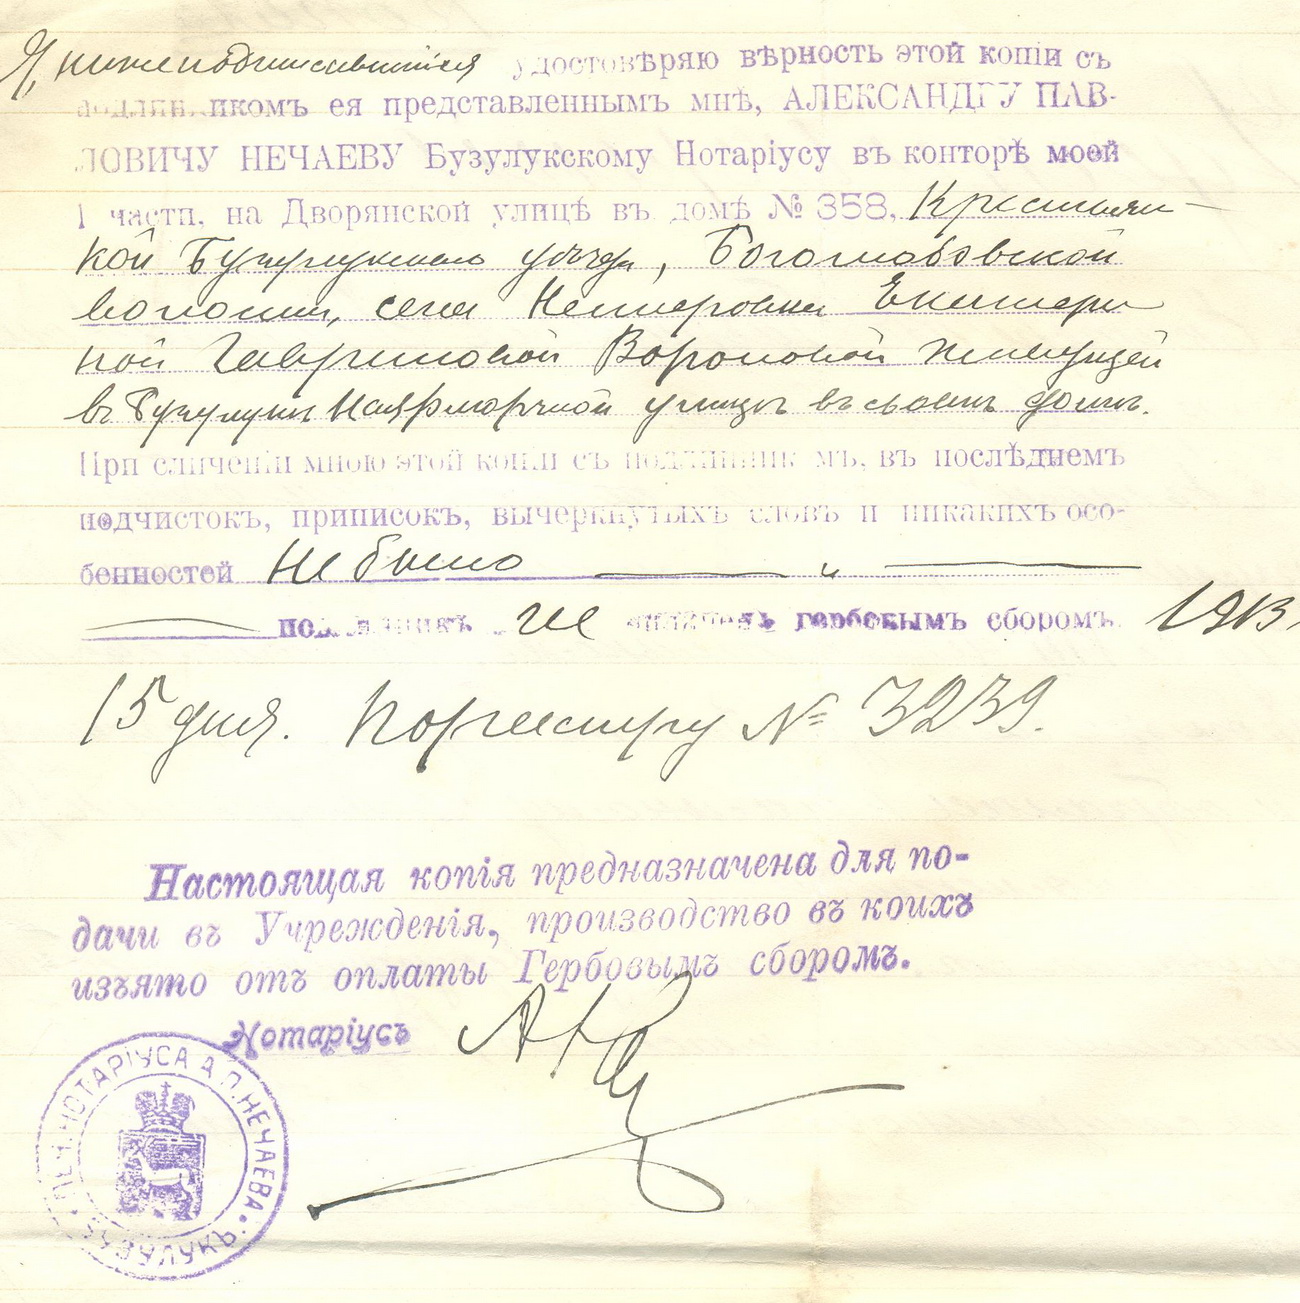 Я, нижеподписавшійся удостовѣряю вѣрность этой копіи съ
подлинникомъ ея представленнымъ мнѣ, АЛЕКСАНДРУ ПАВ-
ЛОВИЧУ НЕЧАЕВУ Бузулукскому Нотаріусу въ конторѣ моей
1 части, на Дворянской улицѣ въ домѣ № 358, Крестьян-
кой Бузулукскаго уѣзда, Богословской
волости, села Нестеровки Екатери
ной Гавриловой Вороновой живущей
въ Бузулукѣ Наярмарочной улицѣ въ своемъ домѣ.
При сличеніи мною этой копіи съ подлинникомъ, въ послѣднемъ
подчистокъ, приписокъ, вычеркнутыхъ словъ и никакихъ осо-
бенностей не было — " —
— подлинникъ не оплаченъ гербовымъ сборомъ 1913
15 дня. По реестру № 3239.
Настоящая копія предназначена для по-
дачи въ Учрежденія, производство въ коихъ
изъято отъ оплаты Гербовымъ сборомъ.
Нотаріусъ
ПЕЧ. НОТАРІУСА А.П. НЕЧАЕВА. БУЗУЛУКЪ